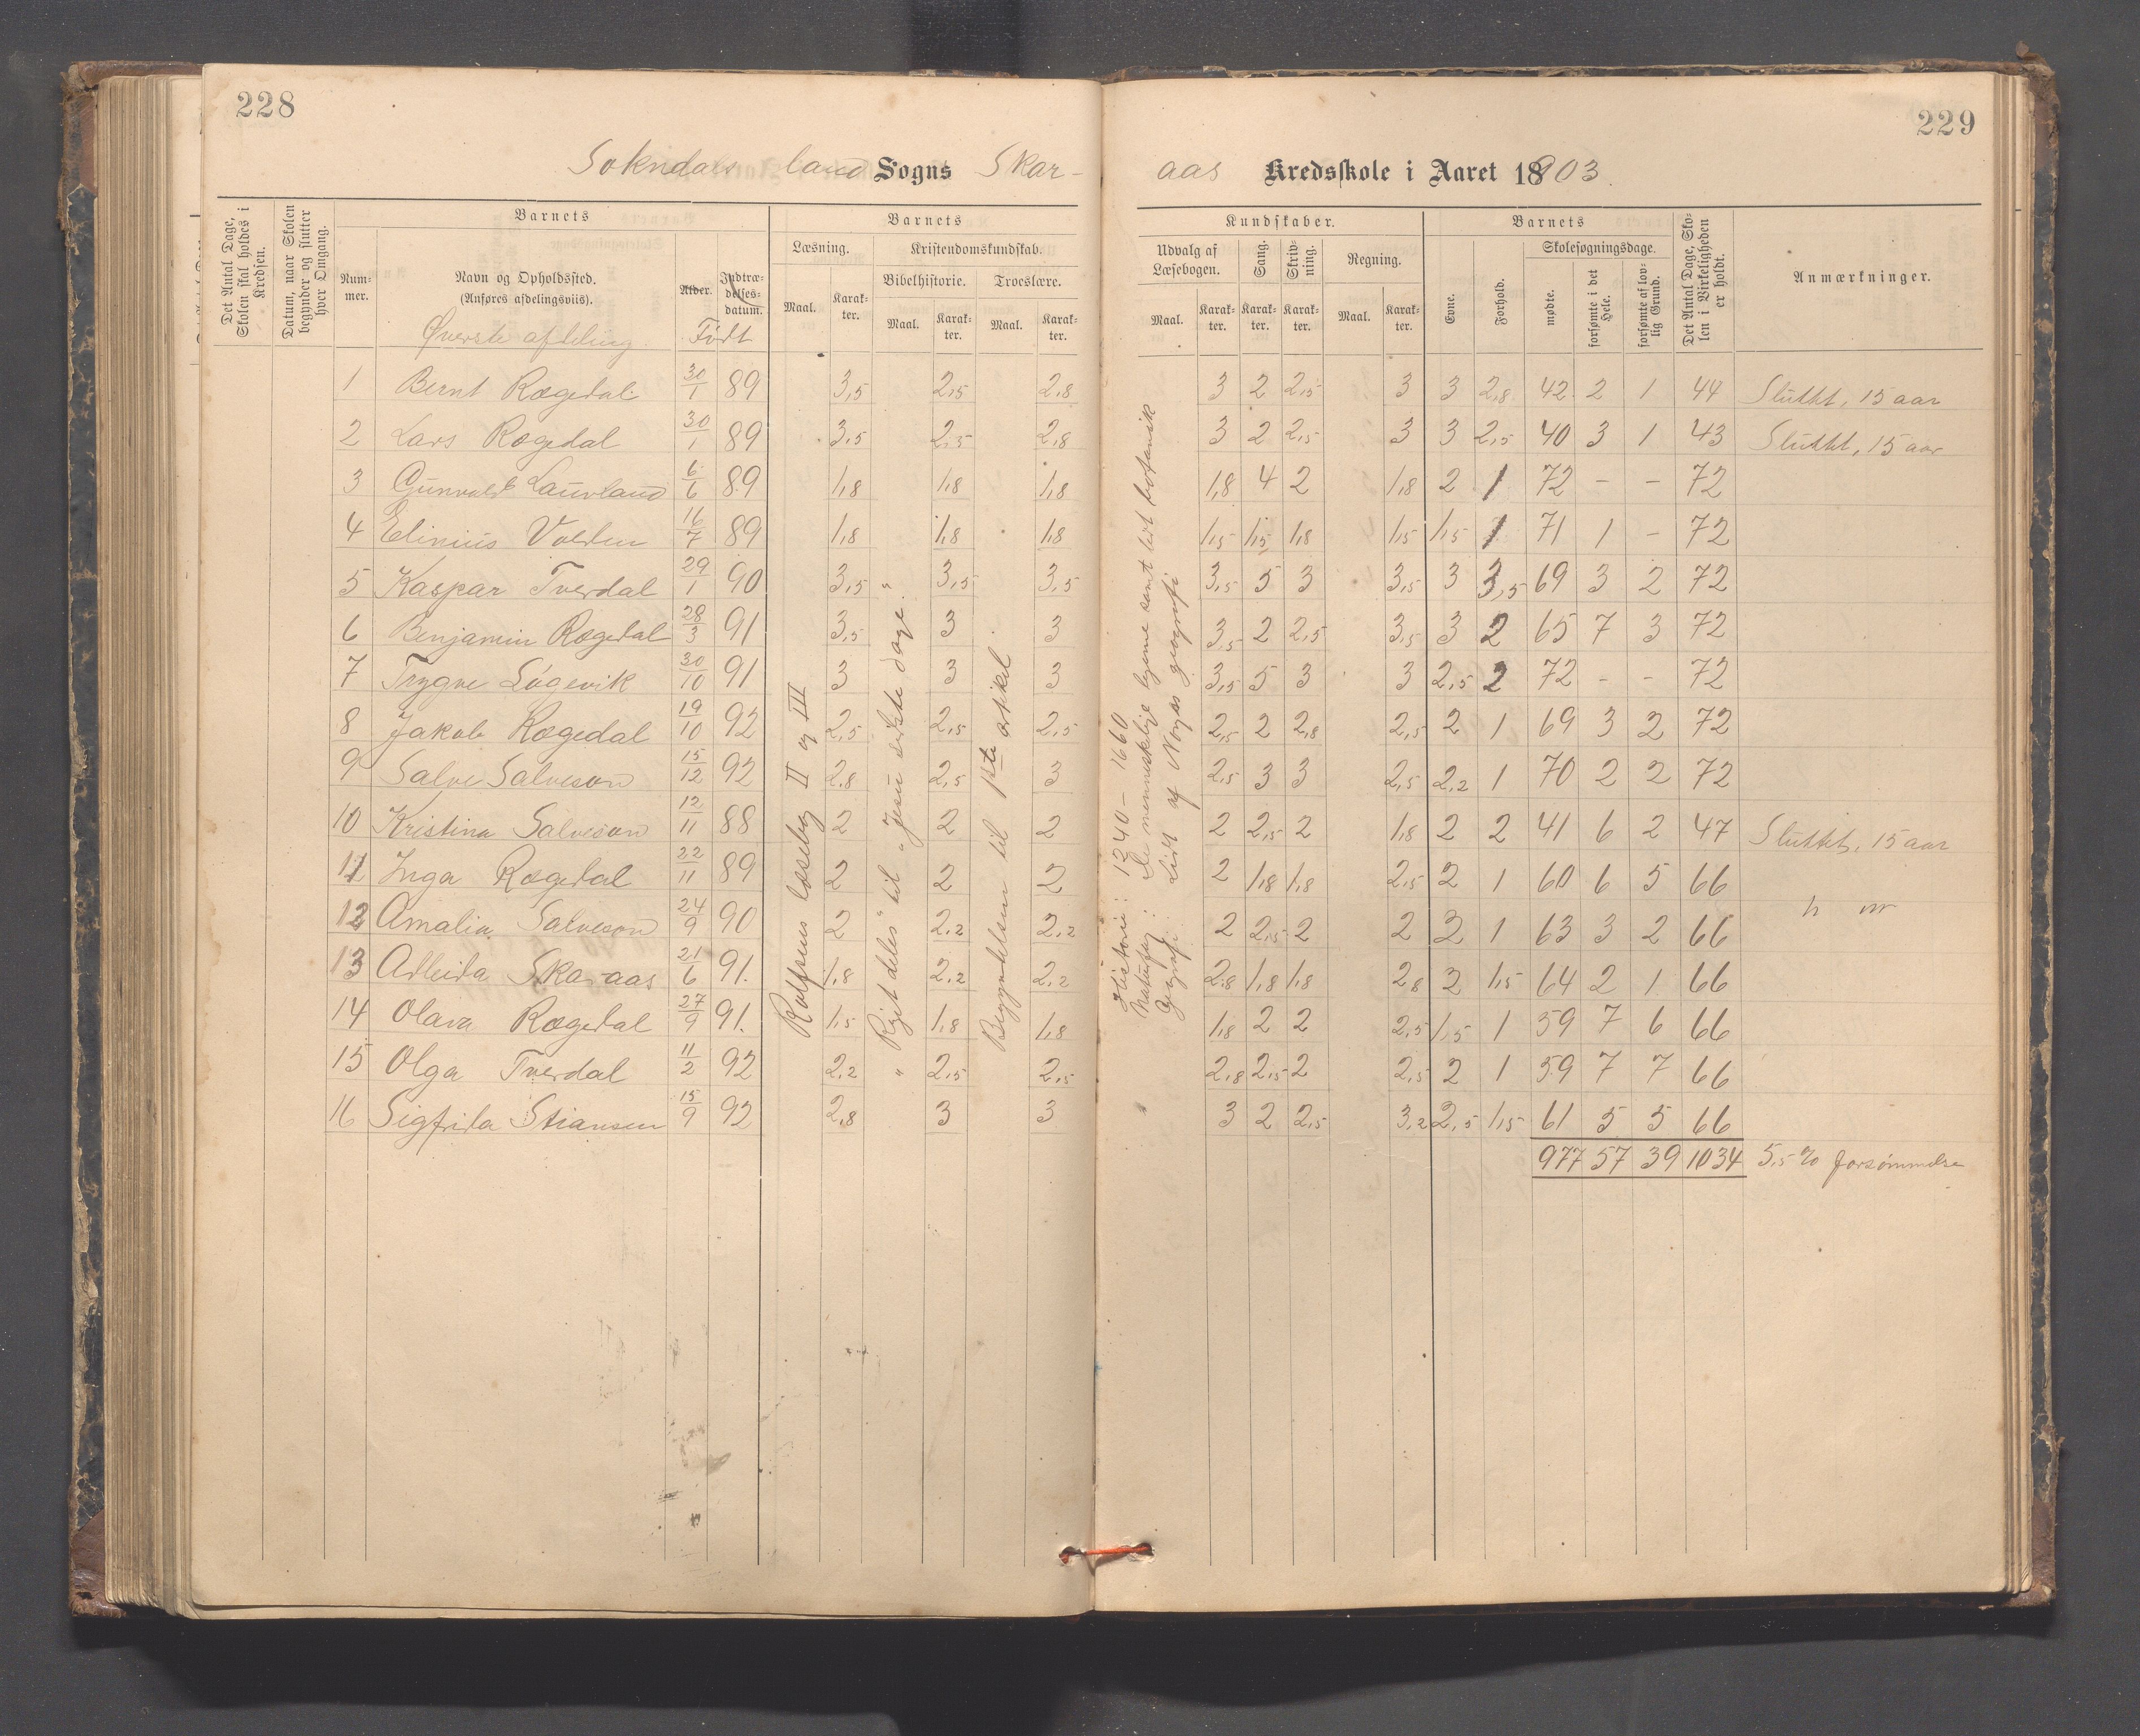 228
229
Sokndals land Sogns Skar-
aas Kredsskole i Aaret 18903.
Det Antal Dage, Skolen skal holdes i Kredsen.
Datum, naar Skolen begynder og slutter hver Omgang.
Barnets
Num-mer.
Navn og Opholdssted.
(Anføres afdelingsviis).
Øverste afdeling.
Alder.
Indtræ-delses-datum.
Født
Barnets
Læsning.
Maal.
Karak-ter.
Kristendomskundskab.
Bibelhistorie.
Maal.
Karak-ter.
Troeslære.
Maal.
Karak-ter.
Kundskaber.
Udvalg af Læsebogen.
Maal.
Karak-ter.
Sang.
Karak-ter.
Skriv-ning.
Karak-ter.
Regning.
Maal.
Karak-ter.
Barnets
Evne.
Forhold.
Skolesøgningsdage.
mødte.
forsømte i det Hele.
forsømte af lov-lig Grund.
Det Antal Dage, Sko-len i Virkeligheden er holdt.
Anmærkninger.
1 Bernt Rægedal 30/1 89 3,5 2,5 2,8 3 2 2,5 3 3 2,8 42 2 1 44 Sluttet, 15 aar
2 Lars Rægedal 30/1 89 3,5 2,5 2,8 3 2 2,5 3 3 2,5 40 3 1 43 Sluttet, 15 aar
3 Gunvald Lauvland 6/6 89 1,8 1,8 1,8 1,8 4 2 1,8 2 1 72 - - 72
4 Elinius Valden 16/7 89 1,8 1,8 1,8 1,5 1,5 1,8 1,5 1,5 1 71 1 - 72
5 Kaspar Tverdal 29/1 90 3,5 3,5 3,5 3,5 5 3 3,5 3 3,5 69 3 2 72
6 Benjamin Rægedal 28/3 91 3,5 3 3 3,5 2 2,5 3,5 3 2 65 7 3 72
7 Trygve Løgevik 30/10 91 3 3 3 3,5 5 3 3 2,5 2 72 - - 72
8 Jakob Rægedal 19/10 92 2,5 2,5 2,5 2,5 2 2,8 2,5 2 1 69 3 2 72
9 Salve Salveson 15/12 92 2,8 2,5 3 2,5 3 3 2,5 2,2 1 70 2 2 72
10 Kristina Salveson 12/11 88 2 2 2 2 2,5 2 1,8 2 2 41 6 2 47 Sluttet, 15 aar
11 Inga Rægedal 22/11 89 2 2 2 2 1,8 1,8 2,5 2 1 60 6 5 66
12 Amalia Salveson 24/9 90 2 2,2 2,2 2 2,5 2 2 2 1 63 3 2 66
13 Adleida Skaraas 21/6 91. 1,8 2,2 2,2 2,8 1,8 1,8 2,8 2 1,5 64 2 1 66
14 Olava Rægedal 27/9 91. 1,5 1,8 1,8 1,8 2 2 2,5 1,5 1 59 7 6 66
15 Olga Tverdal 11/2 92 2,2 2,5 2,5 2,8 2,5 2 2,5 2 1 59 7 7 66
16 Sigfrida Stiansen 15/9 92 2,8 3 3 3 2 2,5 3,2 2,5 1,5 61 5 5 66
977 57 39 1034 5,5 % forsømmelse
Rolfsens læsebog II og III
"Rigets deles" til "Jesu sidste dage."
Begyndelsen til 1ste artikel
Historie: 1240 - 1660
Naturfag: De menneskelige legeme samt lidt botanik
Geografi: Lidt af Norges geografi